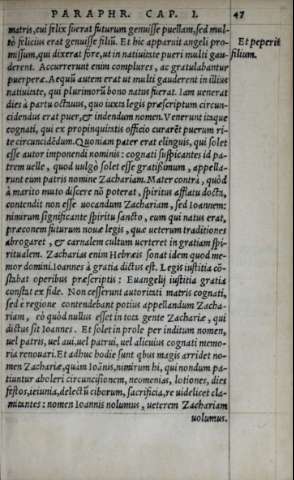 PARAPHR. CAP. I. 47
matris, cui felix fuerat futurum genuisse puellam, sed mul-
tò felicius erat genuisse filiũ. Et hic apparuit angeli pro-
missum, qui dixerat fore, ut in natiuitate pueri multi gau-
derent. Accurrerunt enim complures, ac gratulabantur
puerperæ. Aequũ autem erat ut multi gauderent in illius
natiuitate, qui plurimorũ bono natus fuerat. Iam uenerat
dies à partu octauus, quo iuxta legis præscriptum circun-
cidendus erat puer, & indendum nomen. Venerunt itaque
cognati, qui ex propinquitatis officio curarẽt puerum ri-
te circuncidẽdum. Quoniam pater erat elinguis, qui solet
esse autor imponendi nominis: cognati suspicantes id pa-
trem uelle, quod uulgò solet esse gratissimum, appella-
runt eum patris nomine Zachariam. Mater contrà, quòd
à marito muto discere nõ poterat, spiritus afflatu docta,
contendit non esse uocandum Zachariam, sed Ioannem:
nimirum significante spiritu sancto, eum qui natus erat,
præconem futurum nouæ legis, quæ ueterum traditiones
abrogaret, & carnalem cultum uerteret in gratiam spi-
ritualem. Zacharias enim Hebræis sonat idem quod me-
mor domini. Ioannes à gratia dictus est. Legis iustitia cõ-
stabat operibus præscriptis: Euangelij iustitia gratia
constat ex fide. Non cesserunt autoritati matris cognati,
sed è regione contendebant potius appellandum Zacha-
riam, eò quòd nullus esset in tota gente Zachariæ, qui
dictus sit Ioannes. Et solet in prole per inditum nomen,
uel patris, uel aui, uel patrui, uel alicuius cognati memo-
ria renouari. Et adhuc hodie sunt qbus magis arridet no-
men Zachariæ, quàm Ioãnis, nimirum hi, qui nondum pa-
tiuntur aboleri circuncisionem, neomenias, lotiones, dies
festos, ieiunia, delectũ ciborum, sacrificia, re uidelicet cla-
mitantes: nomen Ioannis nolumus, ueterem Zachariam
uolumus.
Et peperit
filium.